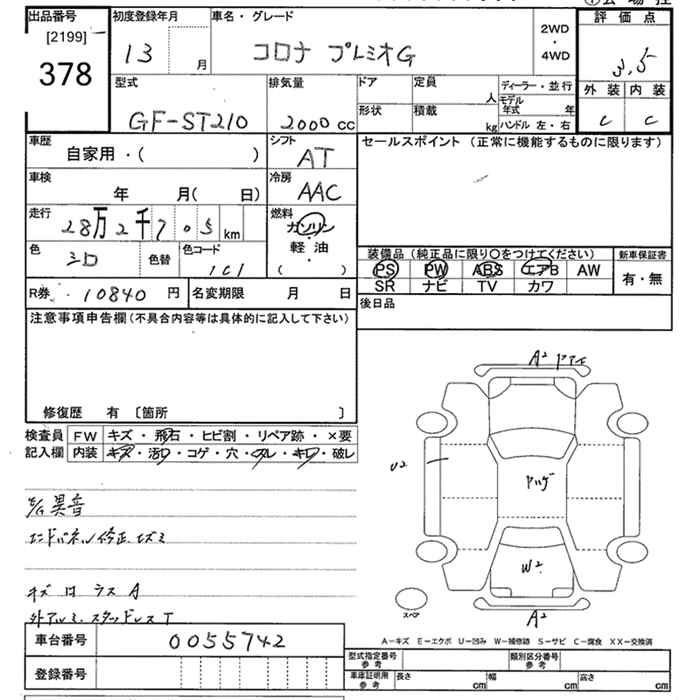 出品番号
[2199]
378
初度登録年月
13 月
車名・グレード
コロナ プレミオG
2WD
・
4WD
評価点
3.5
外装 内装
C C
型式
GF-ST210
排気量
2000 CC
ドア
定員
人
ディーラー・並行
モデル
年式 年
形状
積載
kg
ハンドル 左・右
車歴
自家用・( )
シフト
AT
セールスポイント (正常に機能するものに限ります)
車検
年 月( 日)
冷房
AAC
走行
28万2千705 km
燃料
ガソリン
・
軽油
( )
色
シロ
色替
色コード
1C1
装備品 (純正品に限り〇をつけてください)
新車保証書
PS PW ABS エアB AW
SR ナビ TV カワ
有・無
R券
10840 円
名変期限 月 日
後日品
注意事項申告欄 (不具合内容等は具体的に記入して下さい)
修復歴 有 〔箇所 〕
検査員
記入欄
FW キズ・飛石・ヒビ割・リペア跡・×要
内装 キズ・汚レ・コゲ・穴・スレ・キレ・破レ
E/G異音
エンドパネル修正キズミ
キズ
A
外アルミ、スタッドレスT
A2
U2
W2
A2
スペア
A-キズ E-エクボ U-凹み W-補修跡 S-サビ C-腐食 XX-交換済
車台番号
0055742
登録番号
型式指定番号
参考
類別区分番号
参考
車庫証明用
参考
長さ cm 幅 cm 高さ cm